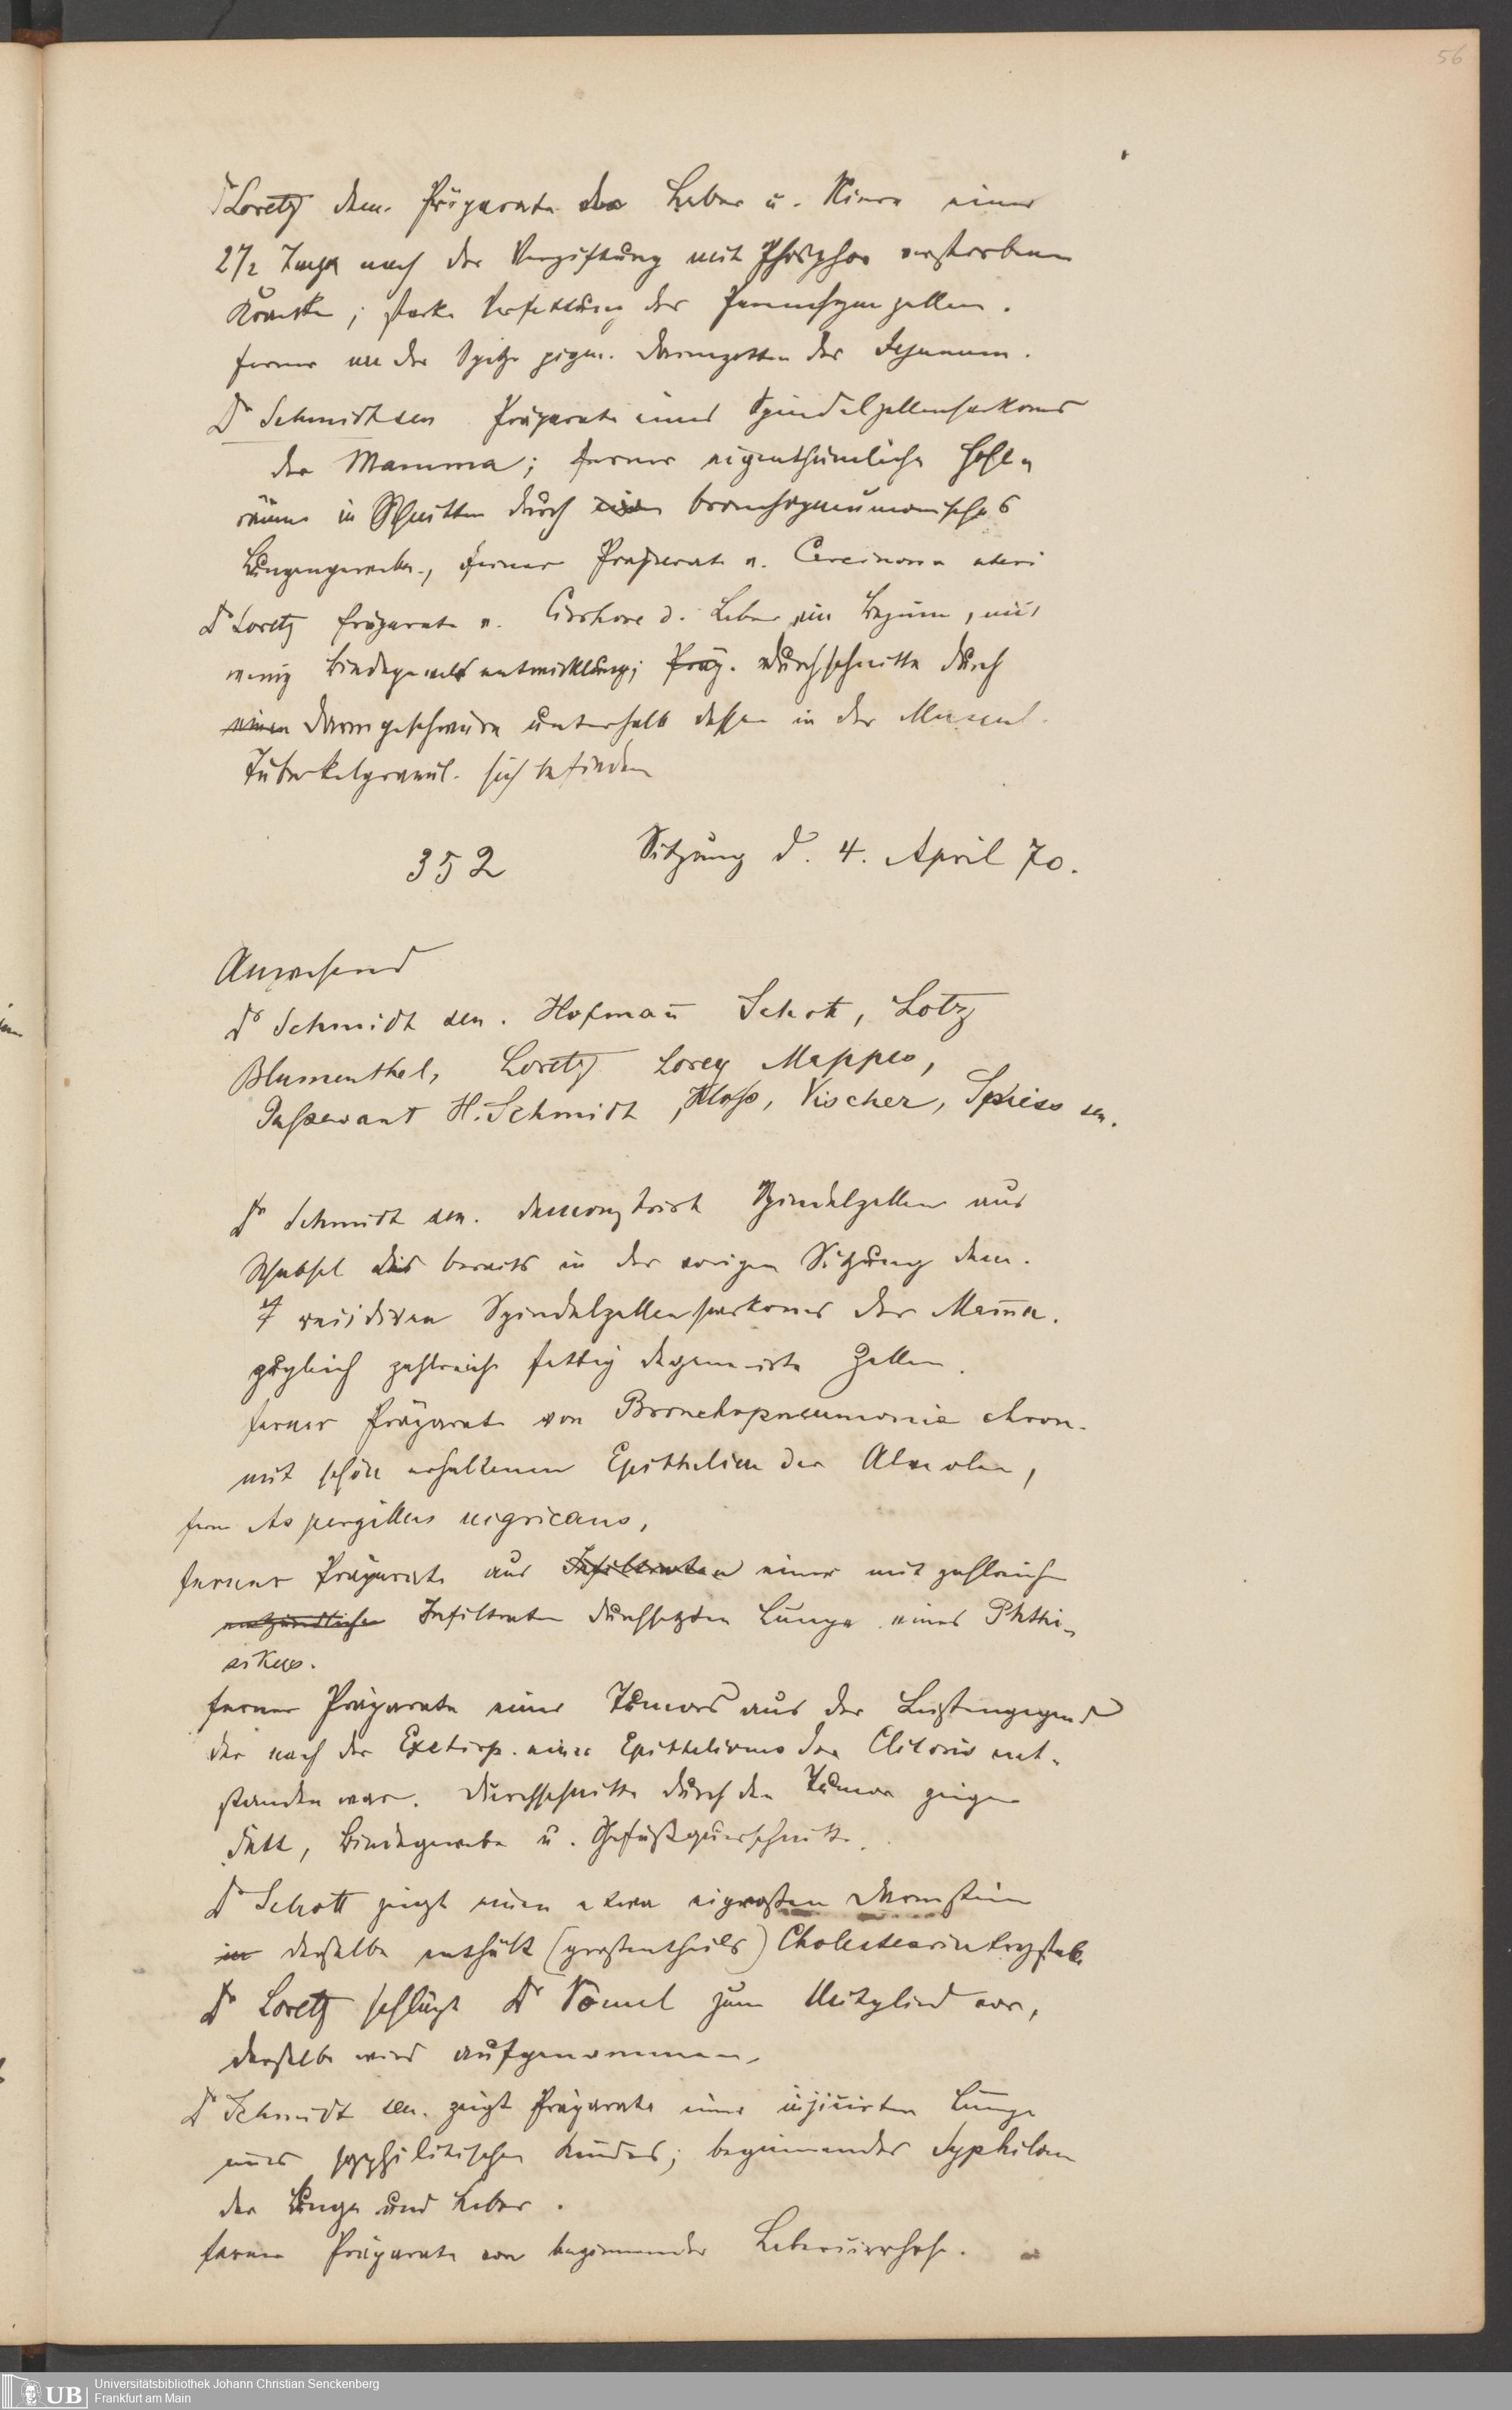 56
Dr Loretz dem. Präparate der Leber u. Niere einer
2 1/2 Tage nach der Vergiftung mit Phosphor verstorbenen
Kranken; starke Verfettung der Parenchymzellen.
ferner an der Spitze pigm. Darmzotten des Jejunum.
Dr Schmidt sen Präparate eines Spindelzellensarkoms
der Mamma; ferner eigenthümliche Hohl-
räume in Schnitten durch bronchopneumonisches
Lungengewebe, ferner Präparate v. Carcinoma uteri
Dr Loretz Präparate v. Cirrhose d. Leber im Beginn, mit
wenig Bindegewebsentwicklung; Präp. Durchschnitte durch
einen Darmgeschwüre unterhalb dessen in der Muscul.
Tuberkelgranul. sich befinden
352 Sitzung d. 4. April 70.
Anwesend
Dr Schmidt sen. Hofman̄ Schott, Lotz
Blumenthal, Loretz Lorey Mappes,
Passavant H. Schmidt, Kloß, Vischer, Spiess sen.
Dr Schmidt sen. demonstrirt Spindelzellen aus
Schabsel des bereits in der vorigen Sitzung dem.
recidiven Spindelzellensarkoms der Mam̄a.
zugleich zahlreiche fettig degenerirte Zellen.
ferner Präparate von Bronchopneumonie chron.
mit schön erhaltenen Epithelien der Alveolen,
fern Aspergillus nigricans,
ferner Präparate aus Infiltraten einer mit zahlreichen
entzündlichen Infiltraten durchsetzten Lunge eines Phthi-
sikus.
ferner Präparate eines Tumors aus der Leistengegend
der nach der Exstirp. eines Epithelioms der Clitoris ent-
standen war. Durchschnitte durch den Tumor zeigen
Fett, Bindegewebe u. Gefäßquerschnitte.
Dr Schott zeigt einen etwa eigroßen Darmstein
in derselbe enthält (grostentheils) Cholestearinkrystalle
Dr Loretz schlägt Dr Vömel zum Mitglied vor,
derselbe wird aufgenommen.
Dr Schmidt sen. zeigt Präparate einer injicirten Lunge
eines syphilitischen Kindes; beginnendes Syphilom
der Lunge und Leber.
ferner Präparate von beginnender Lebercirrhose.
UB
Universitätsbibliothek Johann Christian Senckenberg
Frankfurt am Main